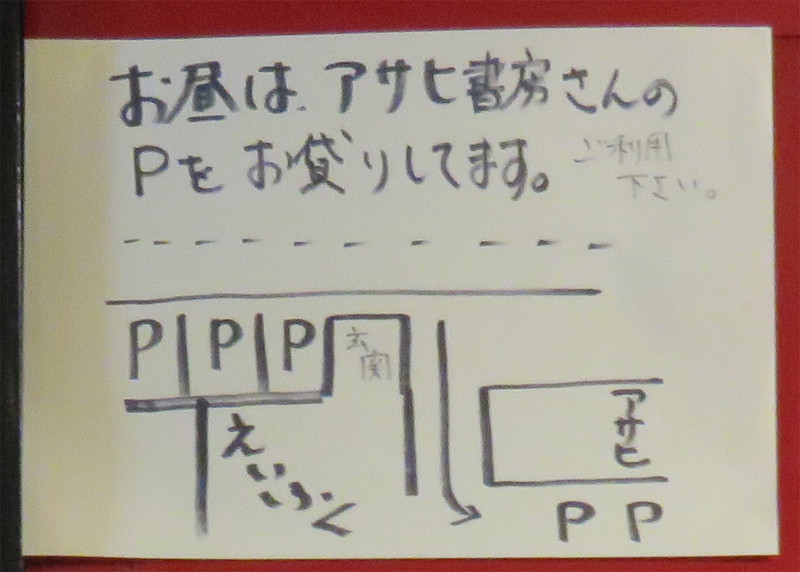 お昼は、アサヒ書房さんの
Pをお貸りしてます。
ご利用
下さい。
P P P
玄関
えいらく
アサヒ
P P